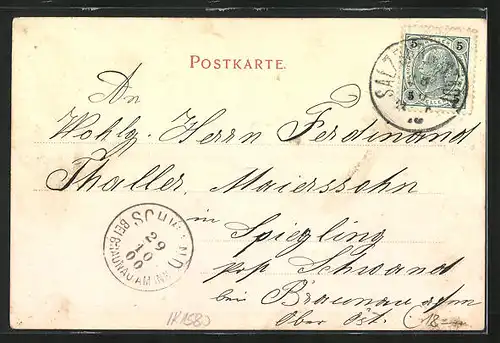 POSTKARTE.
5 5
5
SALZ
An
Wohlg. Herrn Ferdinand
Thaller, Maierssohn
in
Spiegling
SCHWAND
29
10
00
BEI BRAUNAU AM INN
post Schwand
bei Braunau a/Inn
Ober Öst.
18